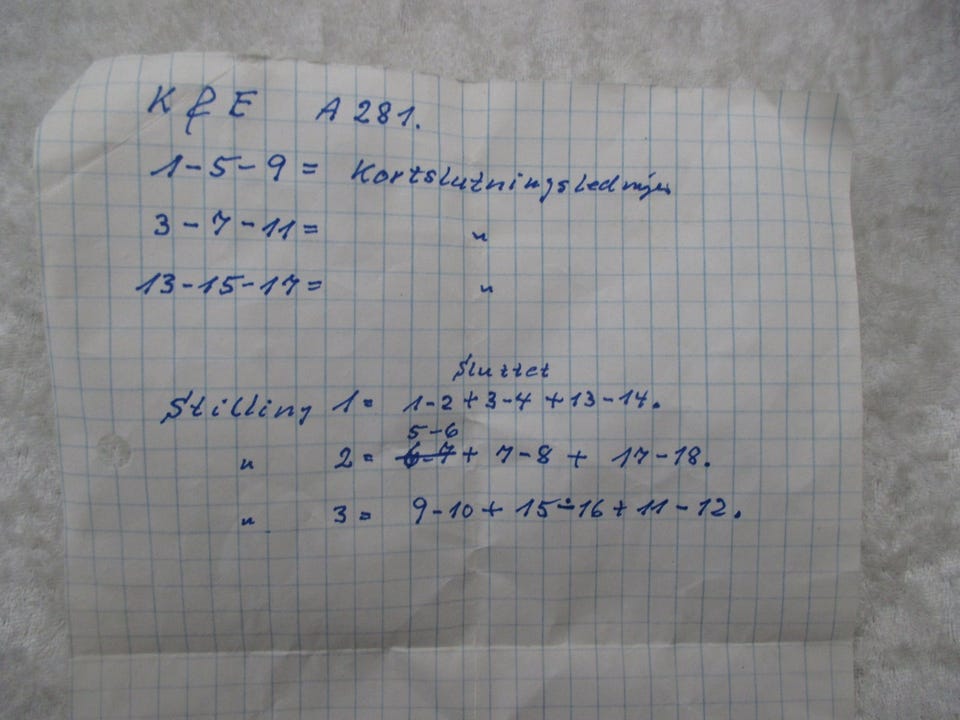 K & E A 281.
1-5-9 = Kortslutningsledninger
3-7-11 = "
13-15-17 = "
Sluttet
Stilling 1 = 1-2 + 3-4 + 13-14.
5-6
" 2 = 6-7 + 7-8 + 17-18.
" 3 = 9-10 + 15-16 + 11-12.